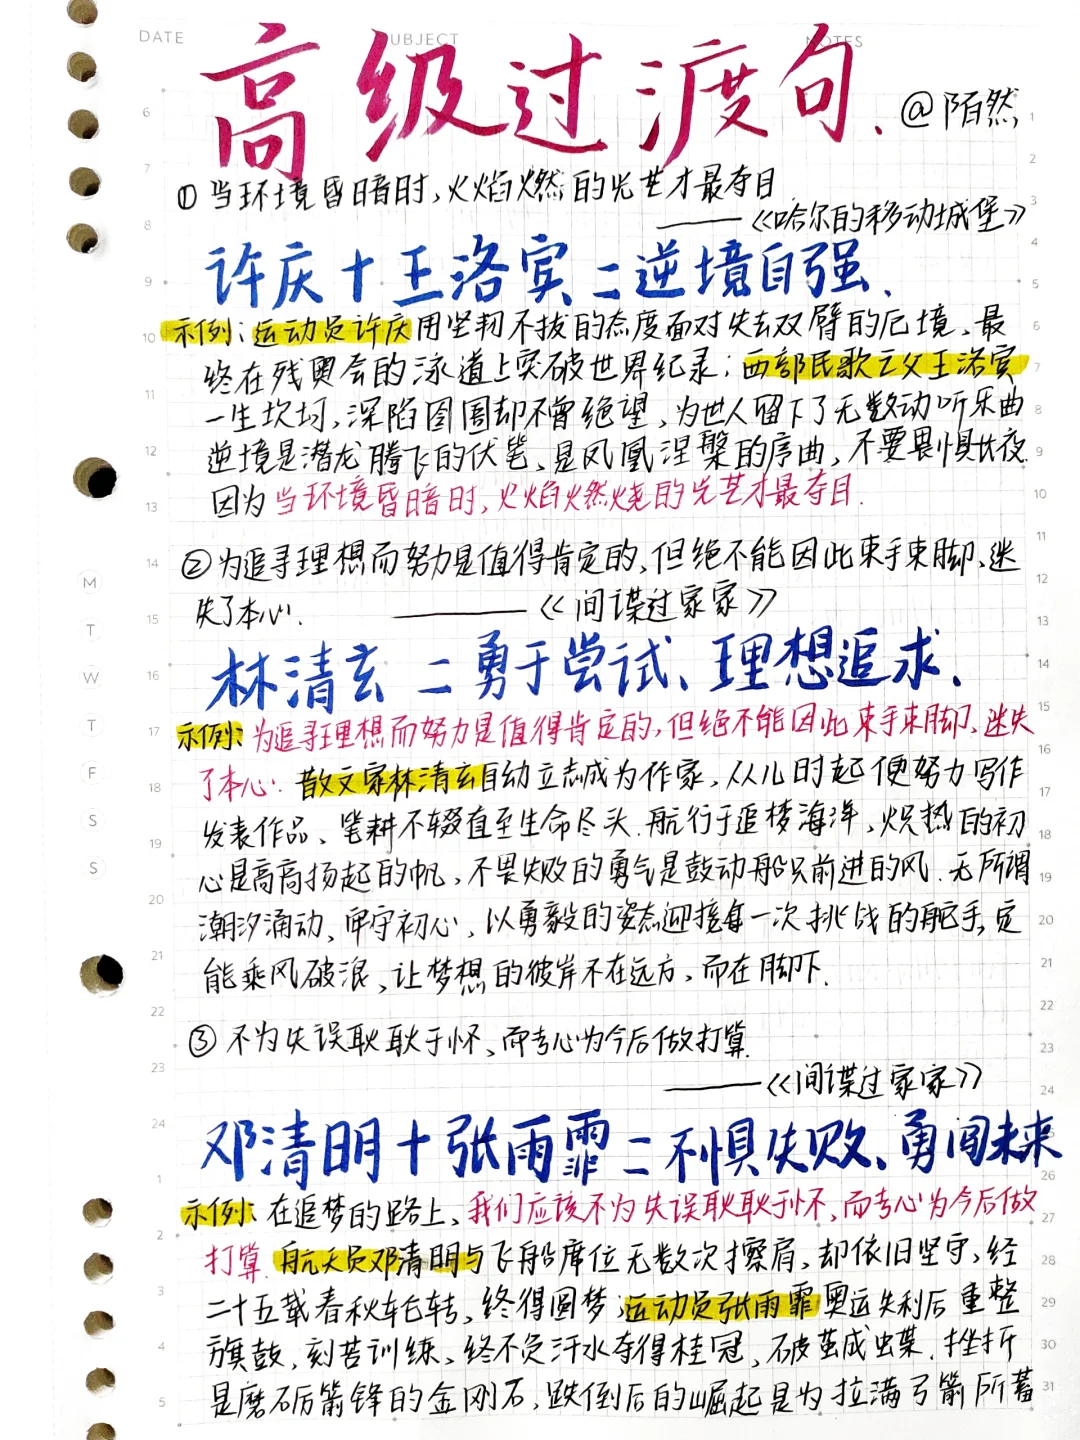 DATE
SUBJECT
NOTES
高级过渡句.
@陌然
①当环境昏暗时,火焰燃的光芒才最夺目
——《哈尔的移动城堡》
许庆十王洛宾=逆境自强.
示例:运动员许庆用坚韧不拔的态度面对失去双臂的厄境、最
终在残奥会的泳道上突破世界纪录;西部民歌之父王洛宾
一生坎坷,深陷囹圄却不曾绝望,为世人留下了无数动听乐曲
逆境是潜龙腾飞的伏笔、是凤凰涅槃的序曲,不要畏惧长夜.
因为当环境昏暗时,火焰燃烧的光芒才最夺目.
②为追寻理想而努力是值得肯定的,但绝不能因此束手束脚、迷
失了本心.
——《间谍过家家》
林清玄=勇于尝试、理想追求.
示例:为追寻理想而努力是值得肯定的,但绝不能因此束手束脚,迷失
了本心.散文家林清玄自幼立志成为作家,从儿时起便努力写作
发表作品、笔耕不辍直至生命尽头.航行于追梦海洋,炽热的初
心是高高扬起的帆,不畏失败的勇气是鼓动船只前进的风.无所谓
潮汐涌动、牢守初心,以勇毅的姿态迎接每一次挑战的舵手,定
能乘风破浪,让梦想的彼岸不在远方,而在脚下.
③不为失误耿耿于怀、而专心为今后做打算.
——《间谍过家家》
邓清明十张雨霏=不惧失败、勇闯未来
示例:在追梦的路上、我们应该不为失误耿耿于怀,而专心为今后做
打算.航天员邓清明与飞船席位无数次擦肩,却依旧坚守,经
二十五载春秋轮转、终得圆梦;运动员张雨霏奥运失利后重整
旗鼓,刻苦训练、终不负汗水夺得桂冠,破茧成蝶.挫折
是磨砺箭锋的金刚石,跌倒后的崛起是为拉满弓箭所蓄